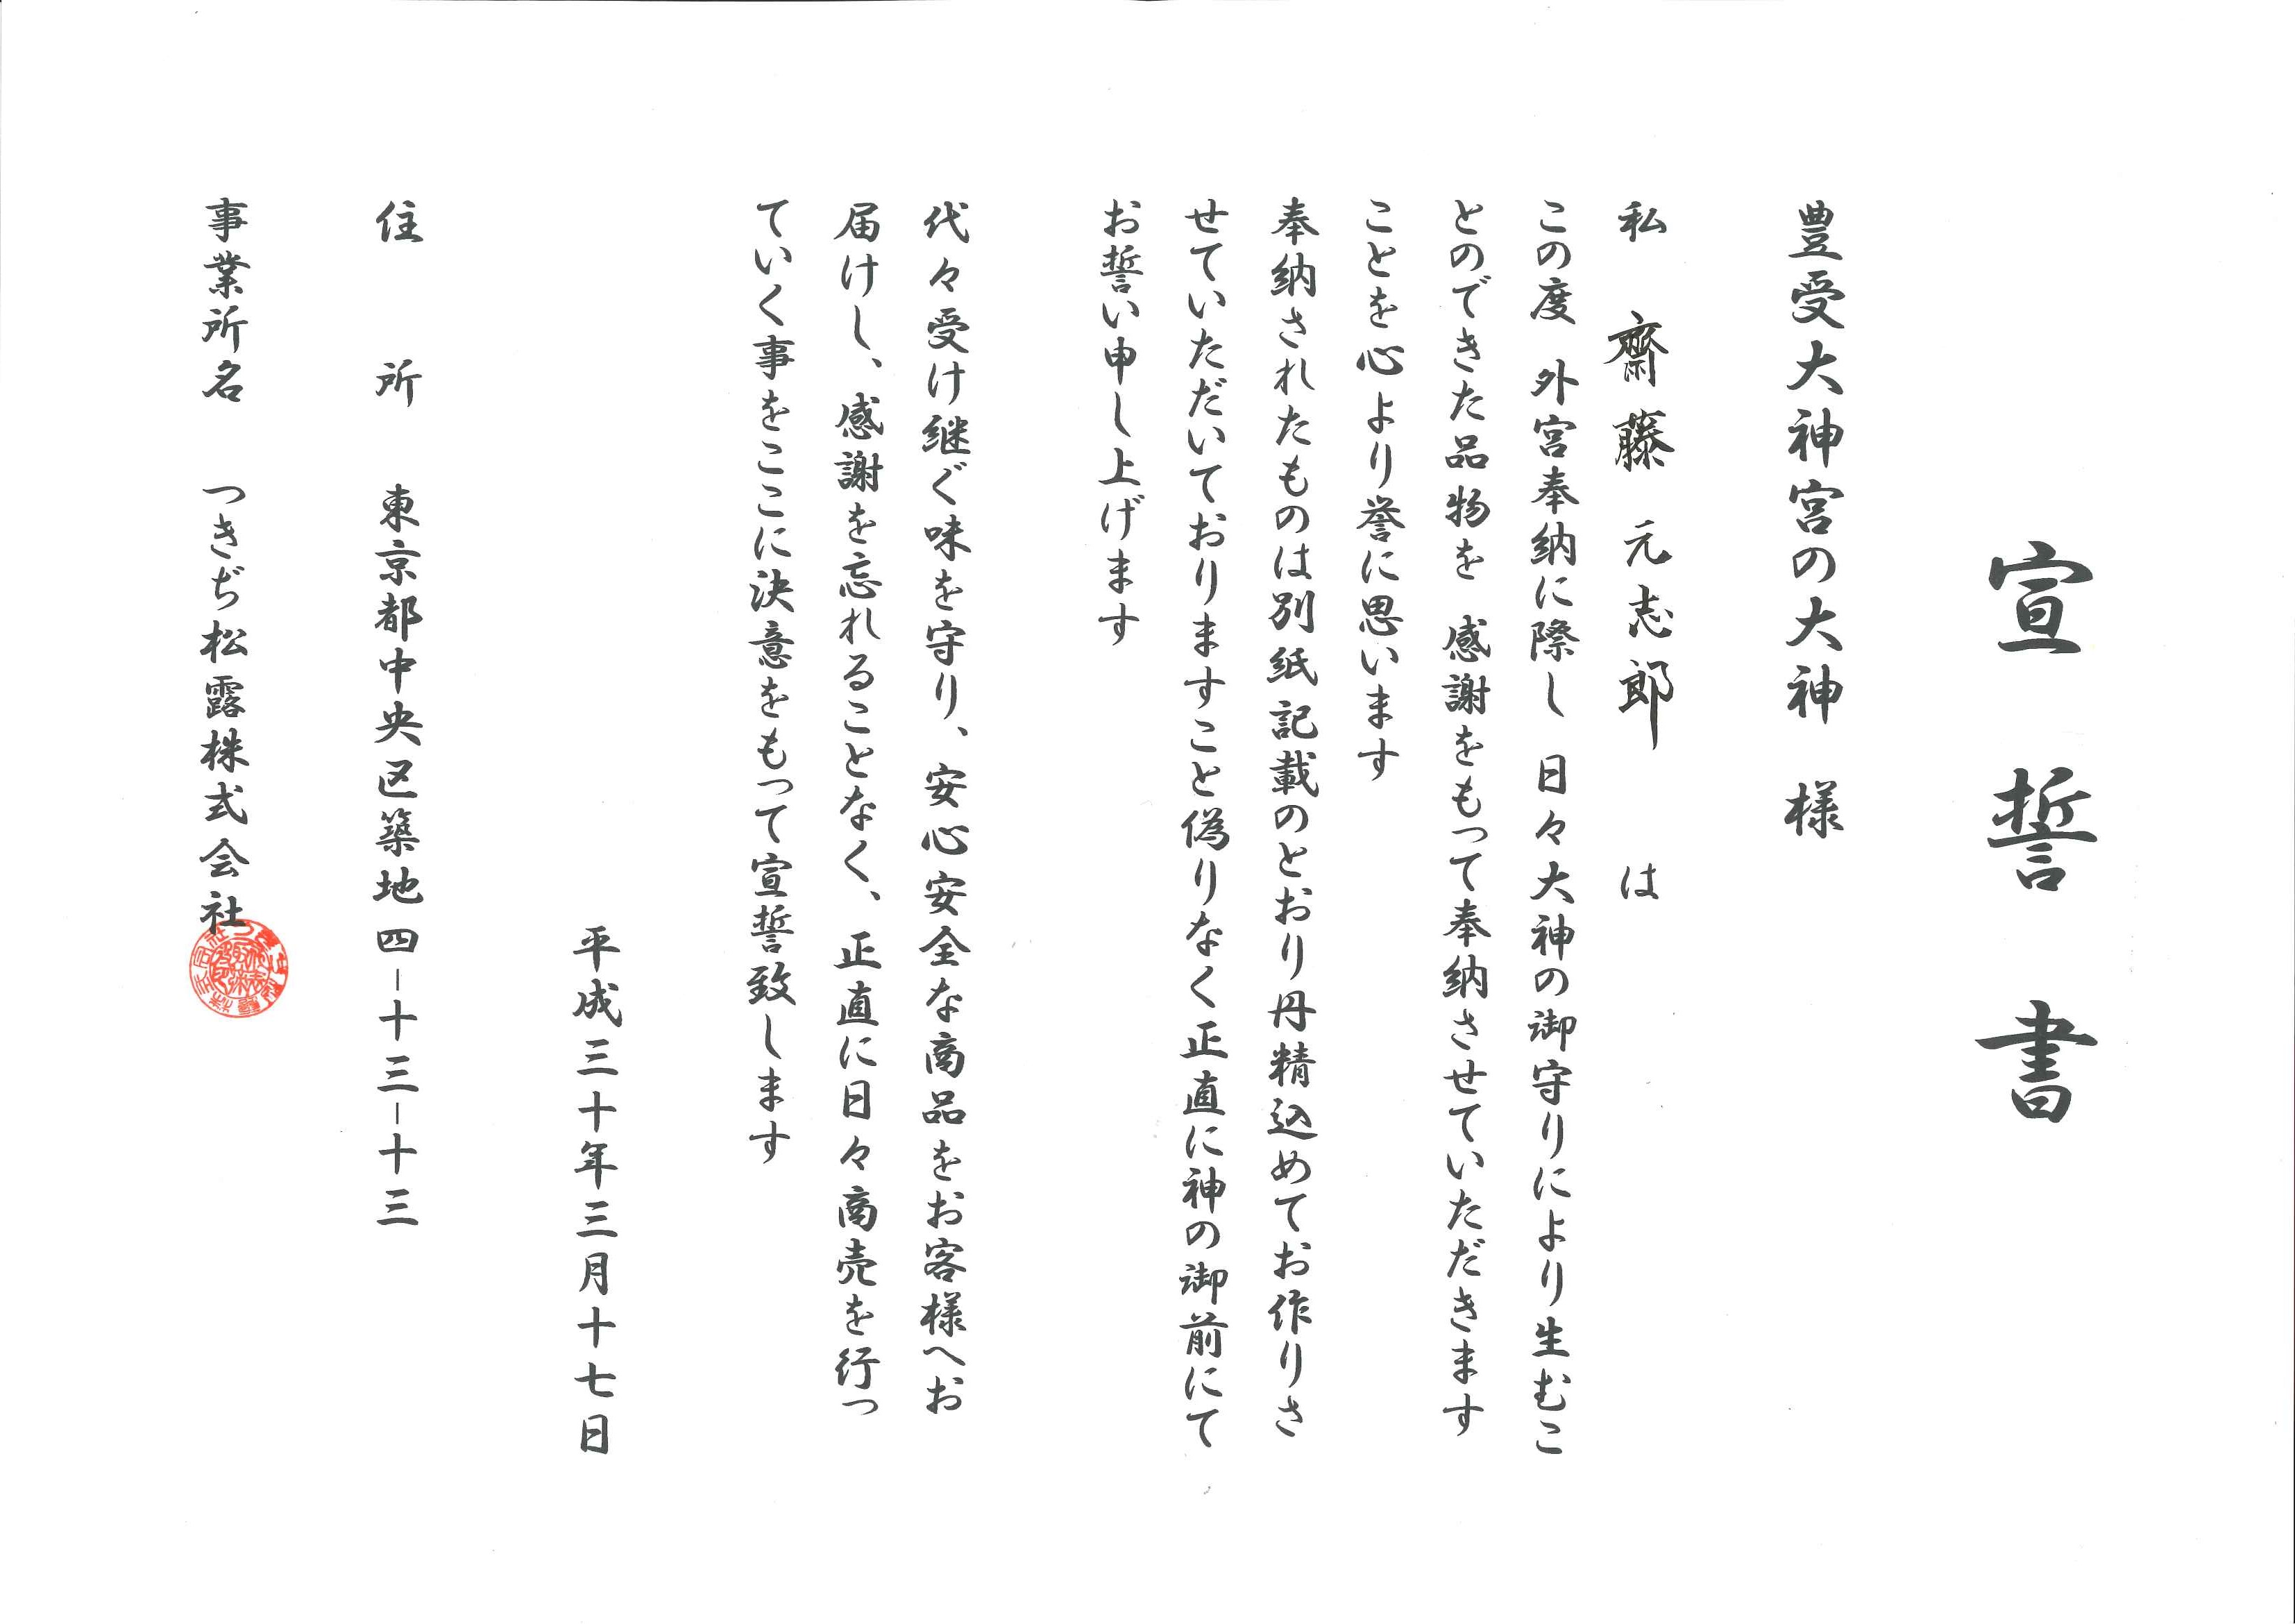 宣誓書
豊受大神宮の大神 様
私 齋藤 元志郎 は
この度 外宮奉納に際し 日々大神の御守りにより生むこ
とのできた品物を 感謝をもって奉納させていただきます
ことを心より誉に思います
奉納されたものは別紙記載のとおり丹精込めてお作りさ
せていただいておりますこと偽りなく正直に神の御前にて
お誓い申し上げます
代々受け継ぐ味を守り、安心安全な商品をお客様へお
届けし、感謝を忘れることなく、正直に日々商売を行っ
ていく事をここに決意をもって宣誓致します
平成三十年三月十七日
住所 東京都中央区築地四-十三-十三
事業所名 つきぢ松露株式会社